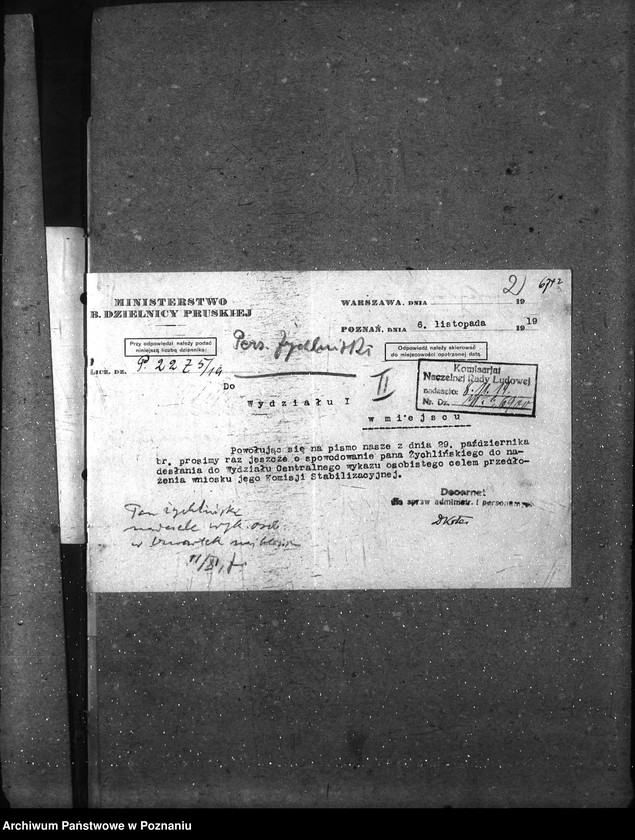 2) 6742
MINISTERSTWO
B. DZIELNICY PRUSKIEJ
WARSZAWA, DNIA 19
POZNAŃ, DNIA 6. listopada 1919
Przy odpowiedzi należy podać
niniejszą liczbę dziennika:
Pers. Żychliński
Odpowiedź należy skierować
do miejscowości opatrzonej datą.
LICZ. DZ. P. 22 Z 5/19
Komisarjat
Naczelnej Rady Ludowej
nadeszło: 8. 11. 19
Nr. Dz.
Do
Wydziału I
II
w miejscu
Powołując się na pismo nasze z dnia 29. października
br. prosimy raz jeszcze o spowodowanie pana Żychlińskiego do na-
desłania do Wydziału Centralnego wykazu osobistego celem przedło-
żenia wniosku jego Komisji Stabilizacyjnej.
Decernet
dla spraw administr. i personalnych
Pan Żychliński
nadeśle wyk. osob.
w
11/XI
Archiwum Państwowe w Poznaniu